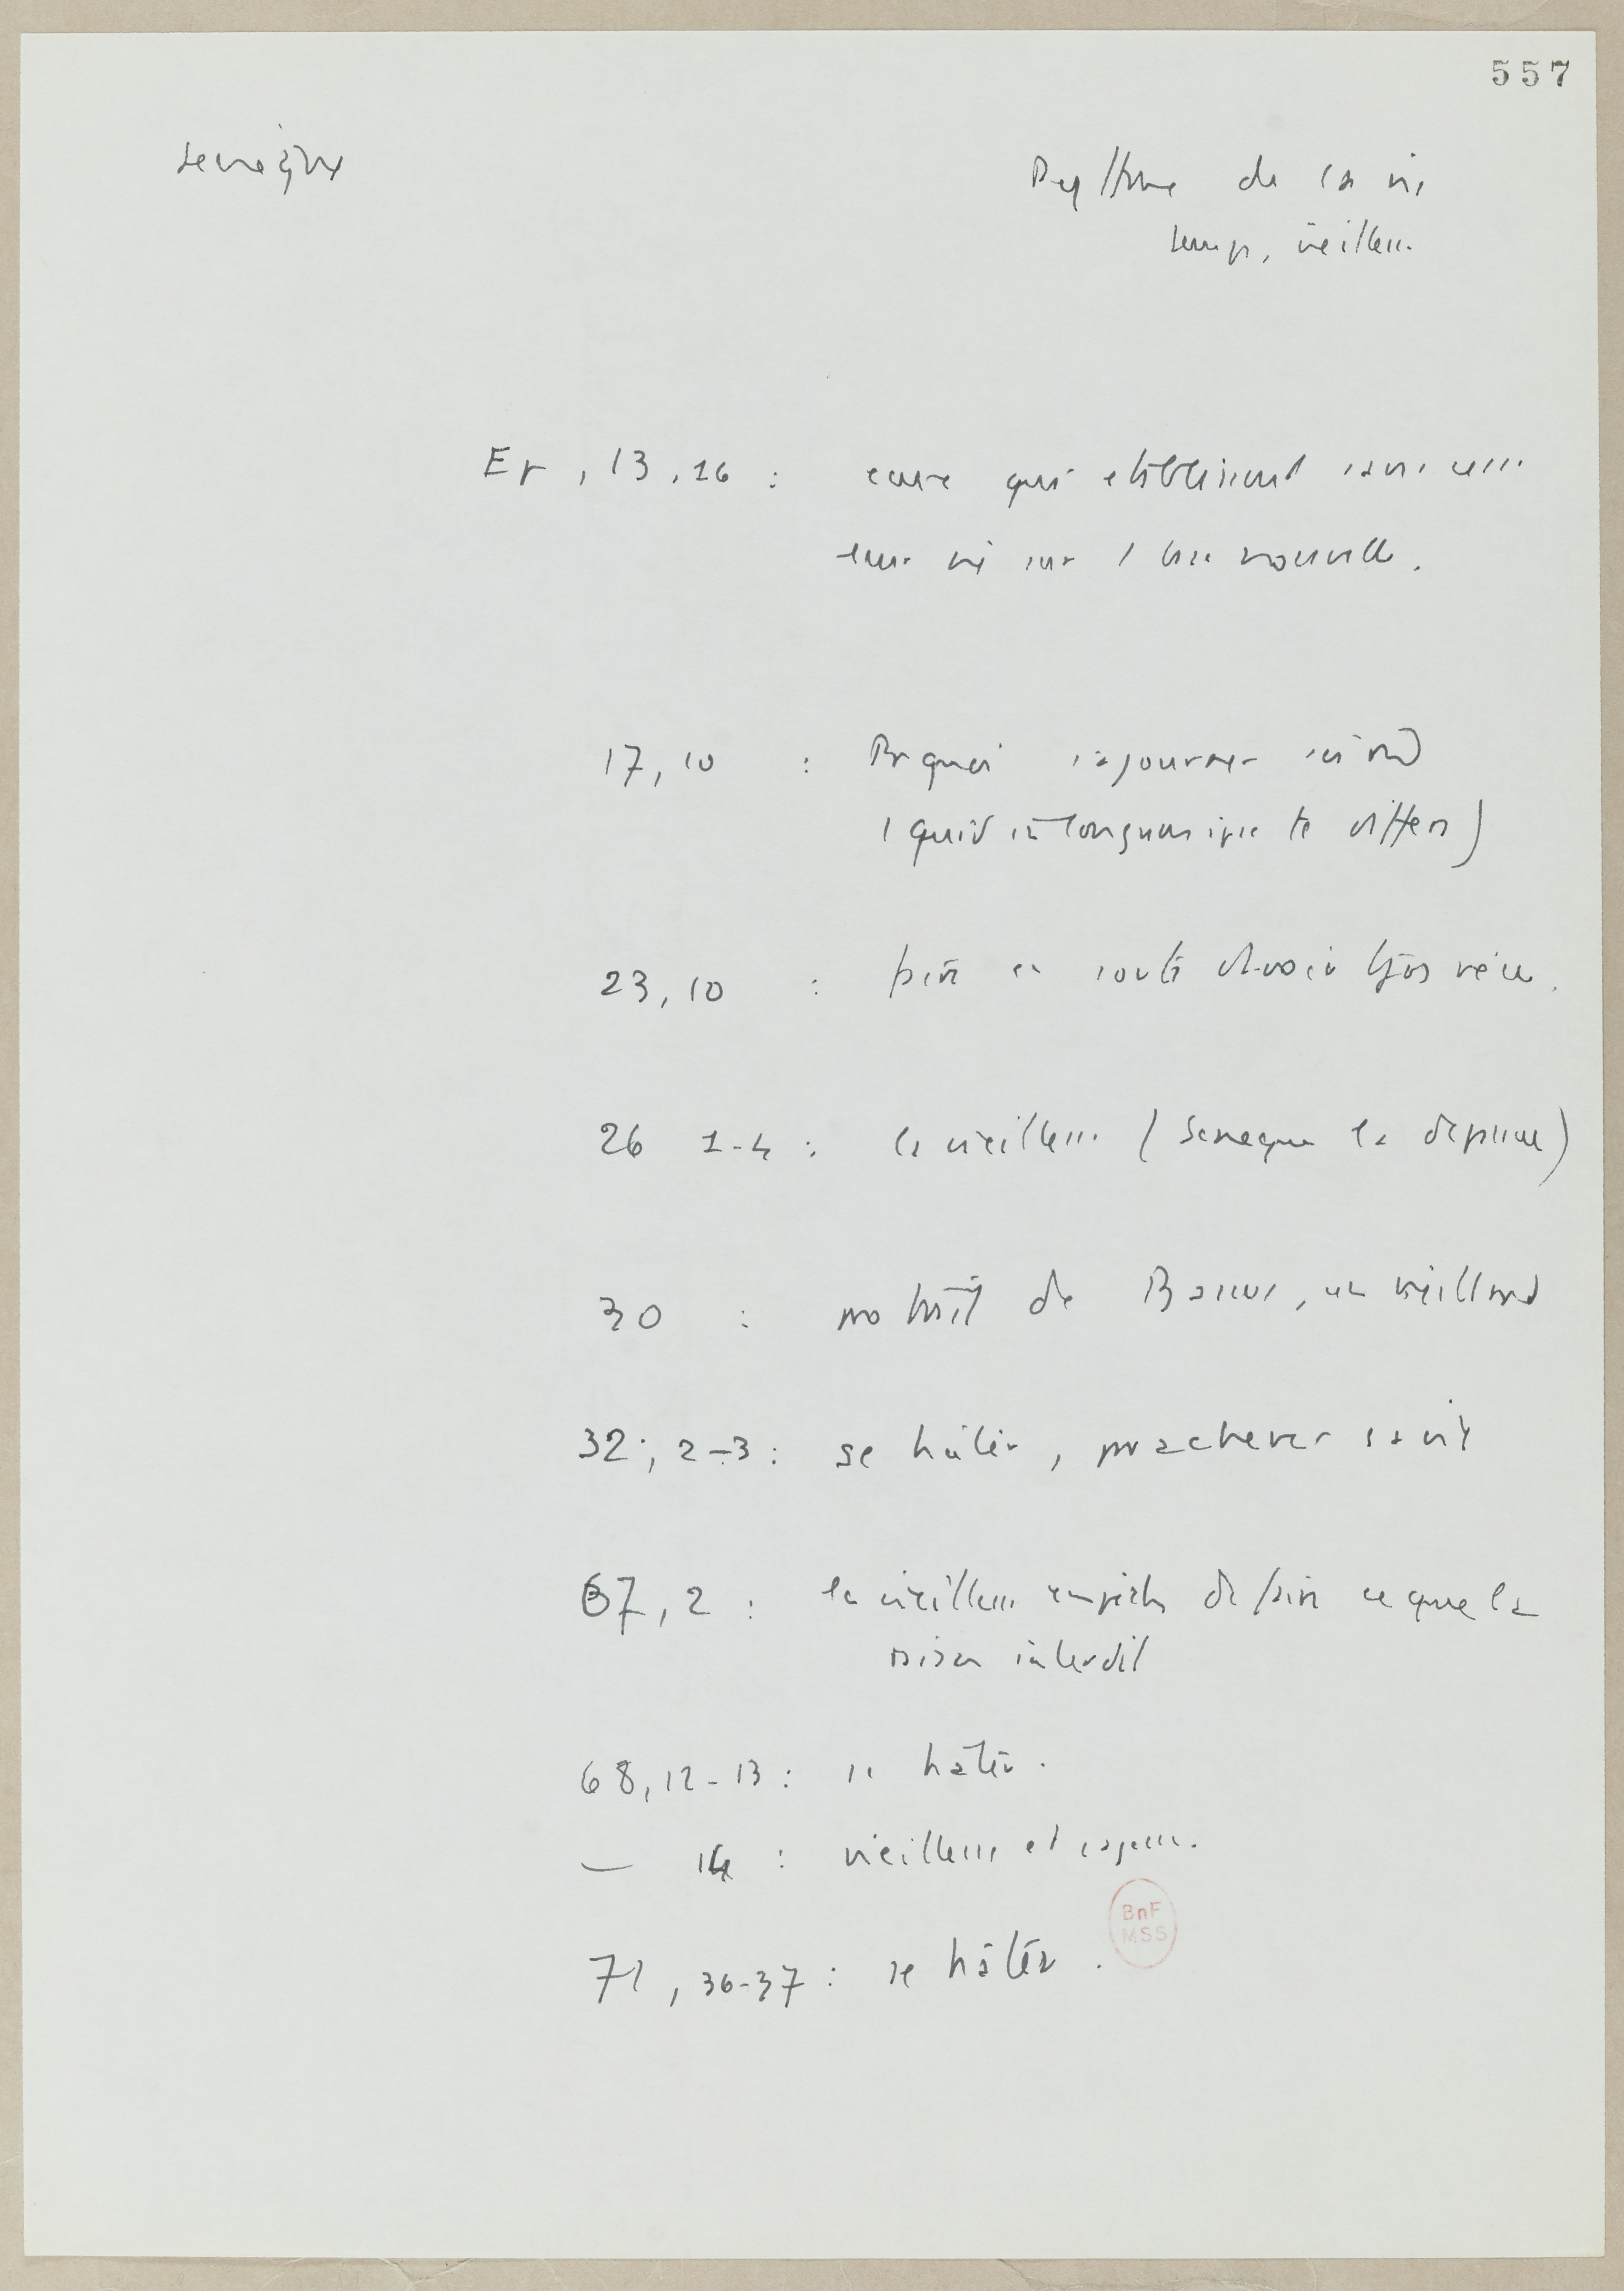 557
Sénèque
Rythme de la vie
temps, vieillesse
Ep, 13, 16 : ceux qui établissent sans cesse
leur vie sur 1 base nouvelle.
17, 10 : Pr quoi
(quid in longum ipse te differs)
23, 10 : faire en sorte d'avoir tjrs vécu.
26 1-4 : la vieillesse (Sénèque la dépasse)
30 : portrait de Bassus, un vieillard
32, 2-3 : se hâter, pr achever sa vie
67, 2 : la vieillesse empêche de faire ce que la
raison interdit
68, 12-13 : se hâter.
— 14 : vieillesse et sagesse.
BnF
MSS
71, 36-37 : se hâter.